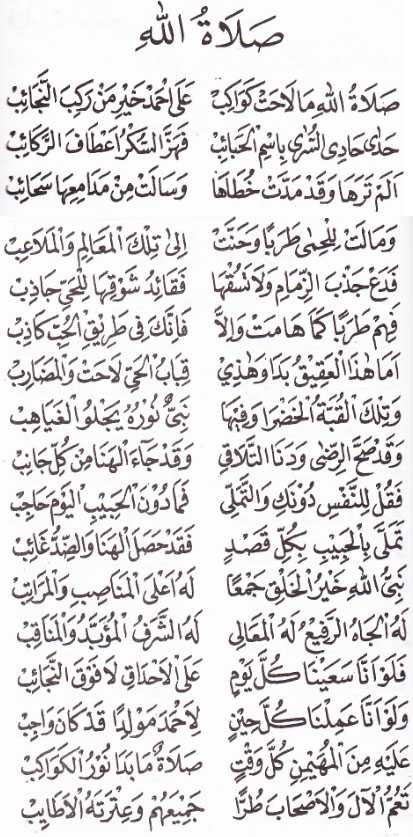 صَلَاةُ اللّٰهِ
صَلَاةُ اللّٰهِ مَا لَاحَتْ كَوَاكِبْ عَلَى أَحْمَدْ خَيْرِ مَنْ رَكِبَ النَّجَائِبْ
حَدَى حَادِى السُّرَى بِاسْمِ الْحَبَائِبْ فَهَزَّ السُّكْرُ اَعْطَافَ الرَّكَائِبْ
اَلَمْ تَرَهَا وَقَدْ مَدَّتْ خُطَاهَا وَسَالَتْ مِنْ مَدَامِعِهَا سَحَائِبْ
وَمَالَتْ لِلْحِمَى طَرَبًا وَحَنَّتْ اِلىٰ تِلْكَ الْمَعَالِمِ وَالْمَلَاعِبْ
فَدَعْ جَذْبَ الزِّمَامِ وَلَا تَسُقْهَا فَقَائِدُ شَوْقِهَا لِلْحَيِّ جَاذِبْ
فَهِمْ طَرَبًا كَمَا هَامَتْ وَاِلَّا فَاِنَّكَ فِى طَرِيْقِ الْحُبِّ كَاذِبْ
اَمَا هٰذَا الْعَقِيْقُ بَدَا وَهٰذِيْ قِبَابُ الْحَيِّ لَاحَتْ وَالْمَضَارِبْ
وَتِلْكَ الْقُبَّةُ الْخَضْرَا وَفِيْهَا نَبِيٌّ نُوْرُهُ يَجْلُو الْغَيَاهِبْ
وَقَدْ صَحَّ الرِّضَى وَدَنَا التَّلَاقِي وَقَدْ جَاءَ الْهَنَا مِنْ كُلِّ جَانِبْ
فَقُلْ لِلنَّفْسِ دُوْنَكِ وَالتَّمَلِّى فَمَا دُوْنَ الْحَبِيْبِ الْيَوْمَ حَاجِبْ
تَمَلَّى بِالْحَبِيْبِ بِكُلِّ قَصْدٍ فَقَدْ حَصَلَ الْهَنَا وَالضِّدُّ غَائِبْ
نَبِيُّ اللّٰهِ خَيْرُ الْخَلْقِ جَمْعًا لَهُ اَعْلَى الْمَنَاصِبِ وَالْمَرَاتِبْ
لَهُ الْجَاهُ الرَّفِيْعُ لَهُ الْمَعَالِى لَهُ الشَّرَفُ الْمُؤَبَّدُ وَالْمَنَاقِبْ
فَلَوْ اَنَّا سَعَيْنَا كُلَّ يَوْمٍ عَلَى الْاَحْدَاقِ لَا فَوْقَ النَّجَائِبْ
وَلَوْ اَنَّا عَمِلْنَا كُلَّ حِيْنٍ لِاَحْمَدَ مَوْلِدًا قَدْ كَانَ وَاجِبْ
عَلَيْهِ مِنَ الْمُهَيْمِنِ كُلَّ وَقْتٍ صَلَاةٌ مَا بَدَا نُوْرُ الْكَوَاكِبْ
تَعُمُّ الْآلَ وَالْاَصْحَابَ طُرًّا جَمِيْعَهُمْ وَعِتْرَتَهُ الْاَطَايِبْ